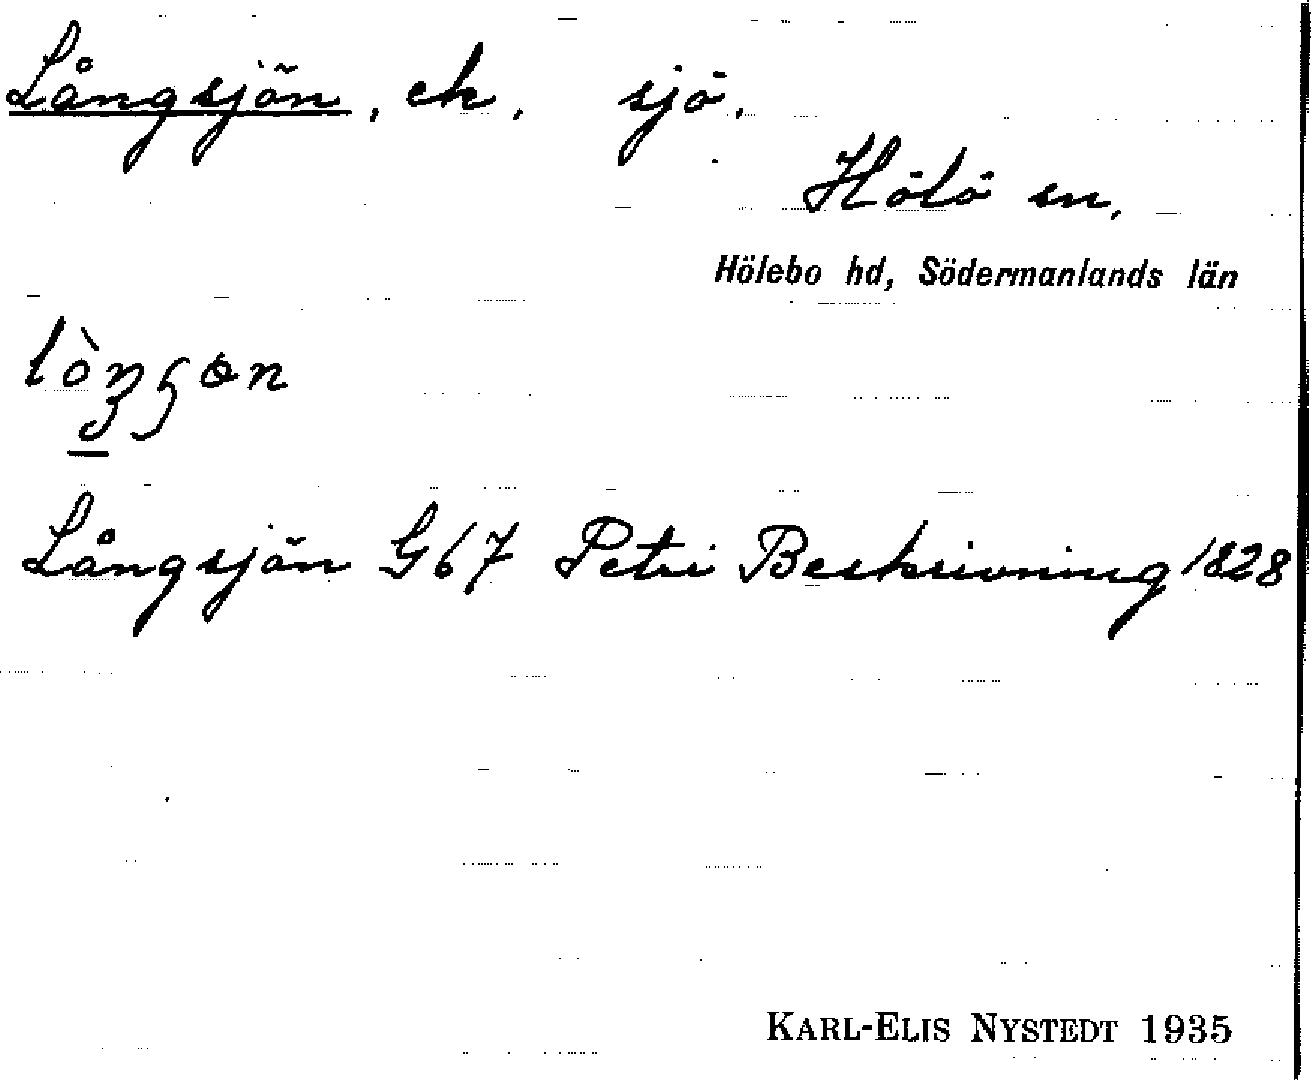 Långsjön, ek, sjö.
Hölö sn.
Hölebo hd, Södermanlands län
Långsjön G67 Petri Beskrivning 1828
KARL-ELIS NYSTEDT 1935